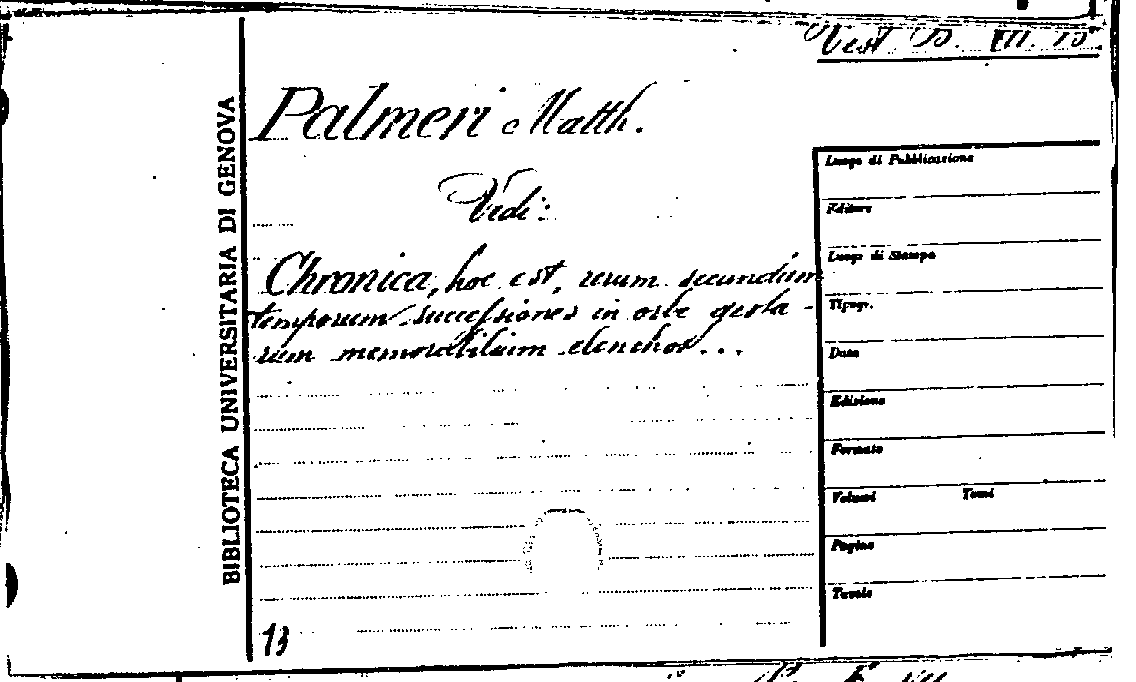 BIBLIOTECA UNIVERSITARIA DI GENOVA
Palmeri Matth.
Vedi:
Chronica, hoc est, rerum secundum
temporum successiones in orbe gesta-
rum memorabilium elenchos...
13
Luogo di Pubblicazione
Editore
Luogo di Stampa
Tipogr.
Data
Edizione
Formato
Volumi Tomi
Pagine
Tavole